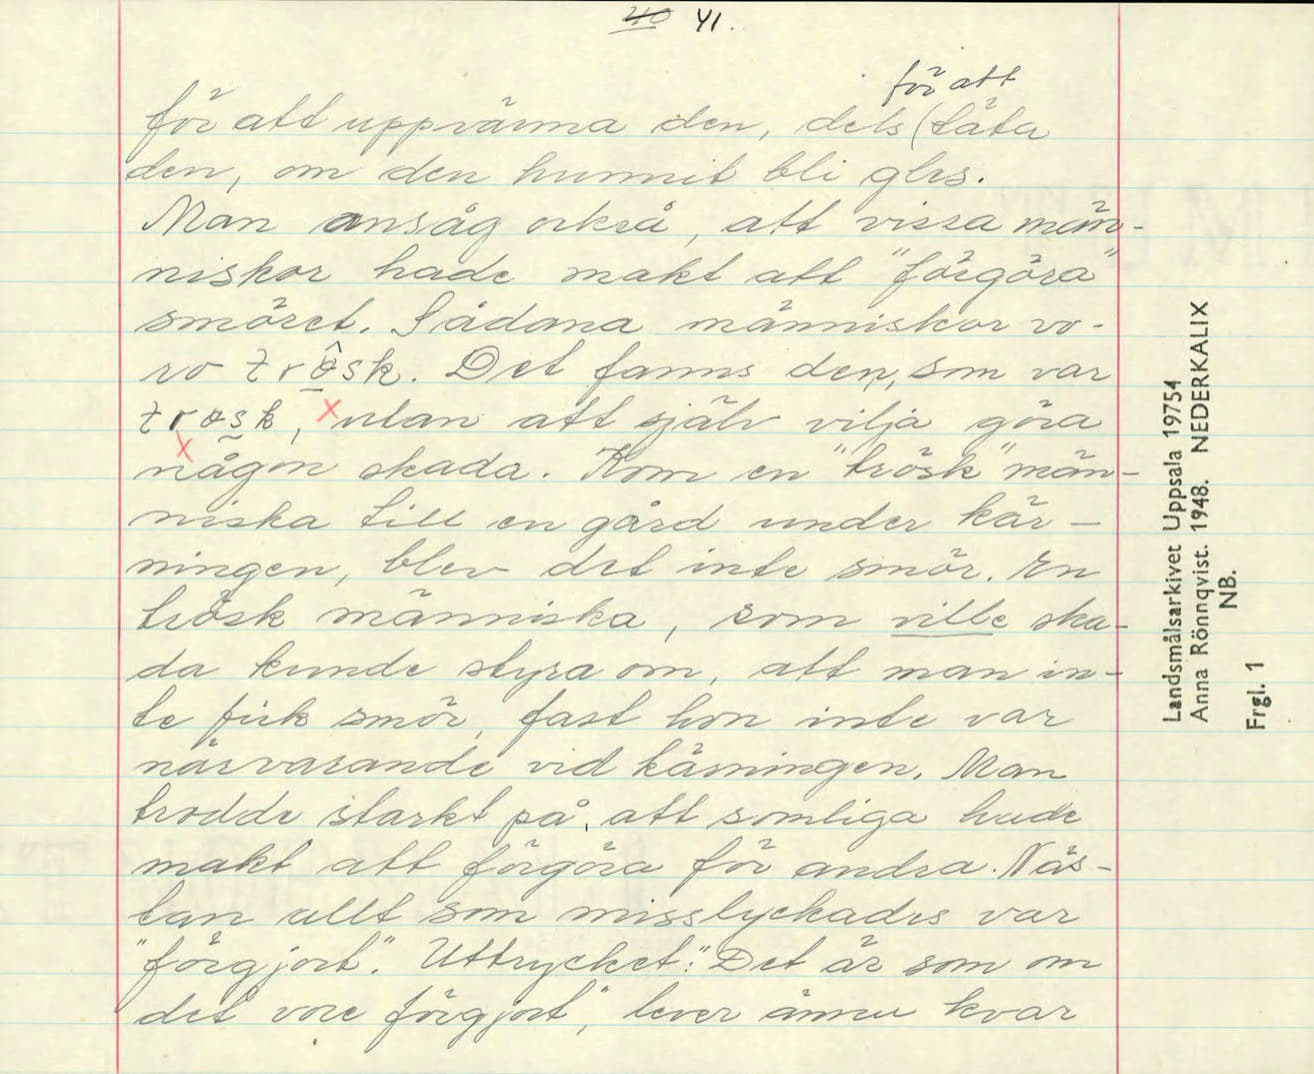 40 41.
för att
för att uppvärma den, dels (täta
den, om den hunnit bli gles.
Man ansåg också, att vissa män-
niskor hade makt att "förgöra"
smöret. Sådana människor vo-
ro trösk. Det fanns den, som var
trösk, utan att själv vilja göra
någon skada. Kom en "trösk" män-
niska till en gård under kär-
ningen, blev det inte smör. En
trösk människa, som ville ska-
da kunde styra om, att man in-
te fick smör, fast hon inte var
närvarande vid kärningen. Man
trodde starkt på, att somliga hade
makt att förgöra för andra. Näs-
tan allt som misslyckades var
"förgjort". Uttrycket: "Det är som om
det vore förgjort", lever ännu kvar
Landsmålsarkivet Uppsala 19754
Anna Rönnqvist. 1948. NEDERKALIX
NB.
Frgl. 1